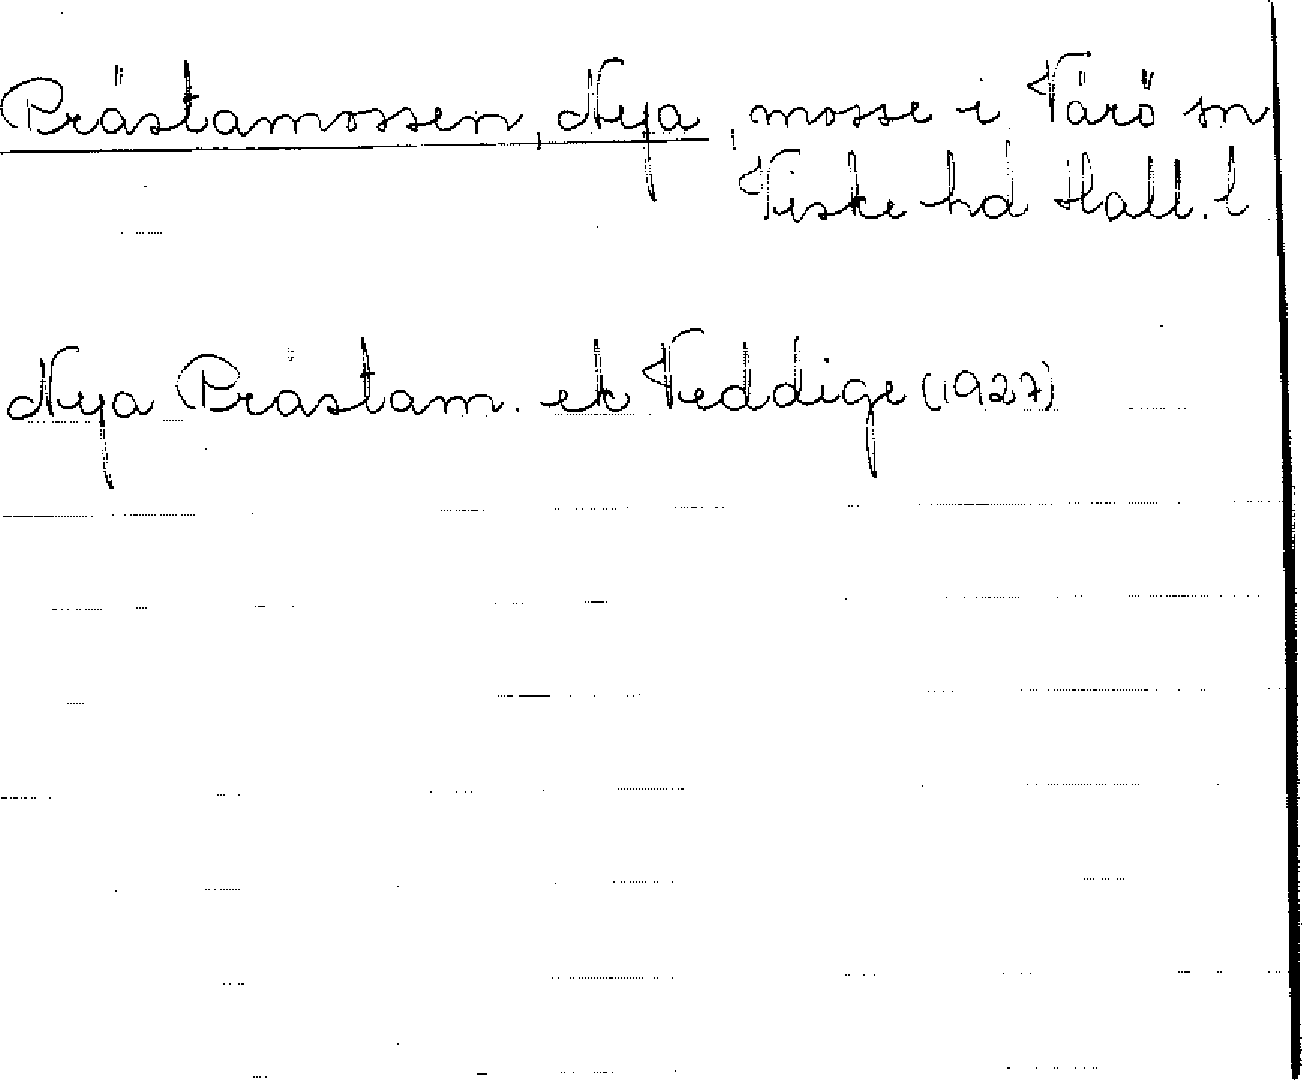 Prästamossen, Nya, mosse i Värö sn
Viske hd Hall. l
Nya Prästam. ek Veddige (1927)